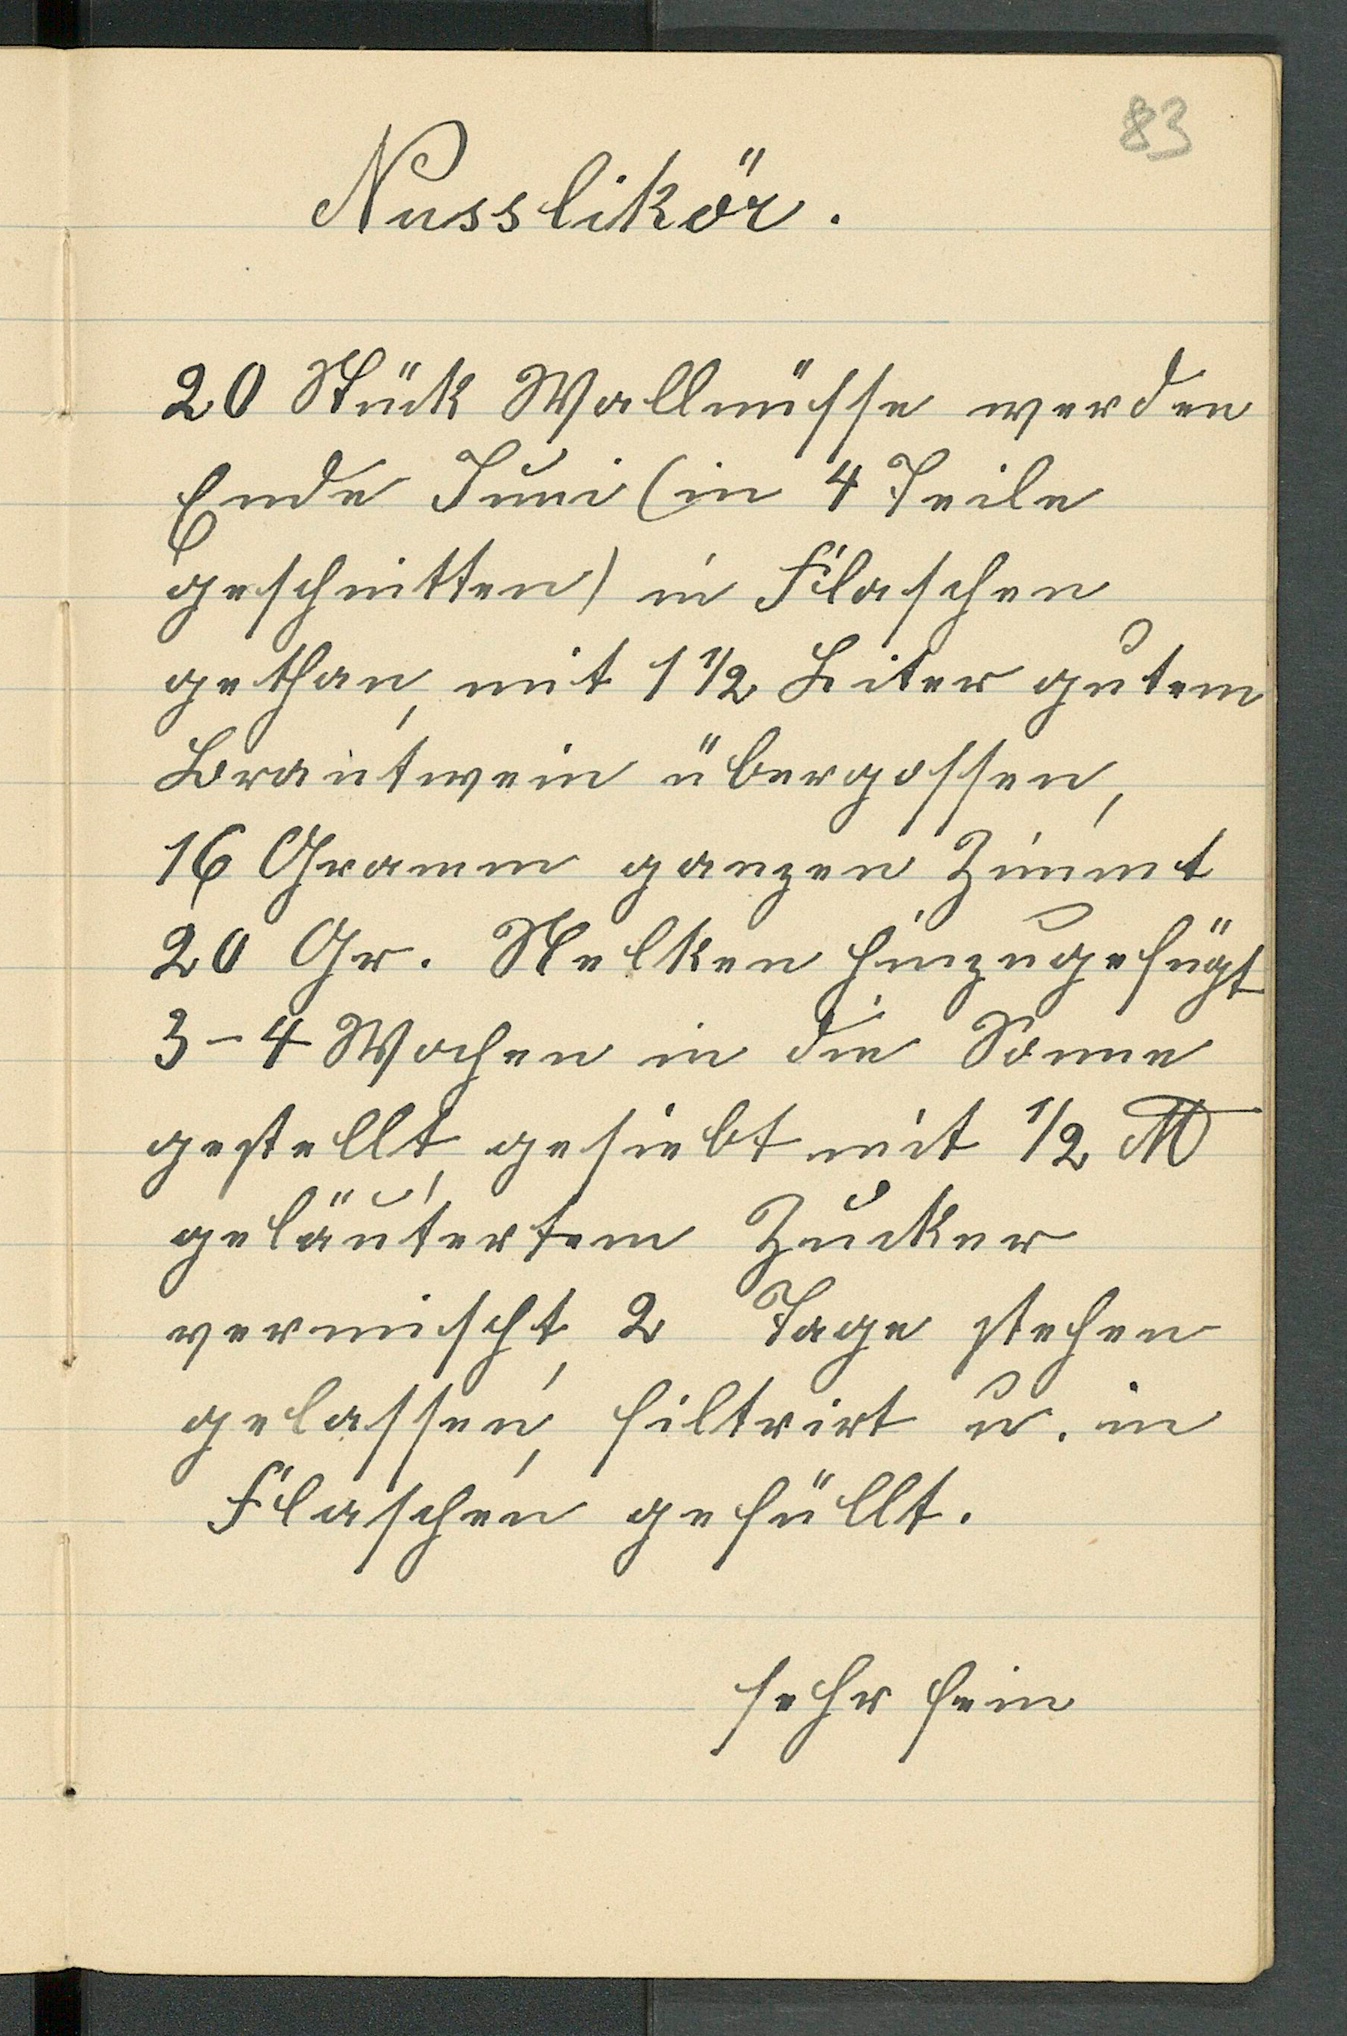 83
Nusslikör.
20 Stück Wallnüsse werden
Ende Juni (in 4 Teile
geschnitten) in Flaschen
gethan, mit 1 1/2 Liter gutem
Brantwein übergossen,
16 Gramm ganzen Zimmt
20 Gr. Nelken hinzugefügt
3-4 Wochen in die Sonne
gestellt, gesiebt mit 1/2 ℔
geläutertem Zucker
vermischt, 2 Tage stehen
gelassen, filtrirt u. in
Flaschen gefüllt.
sehr fein